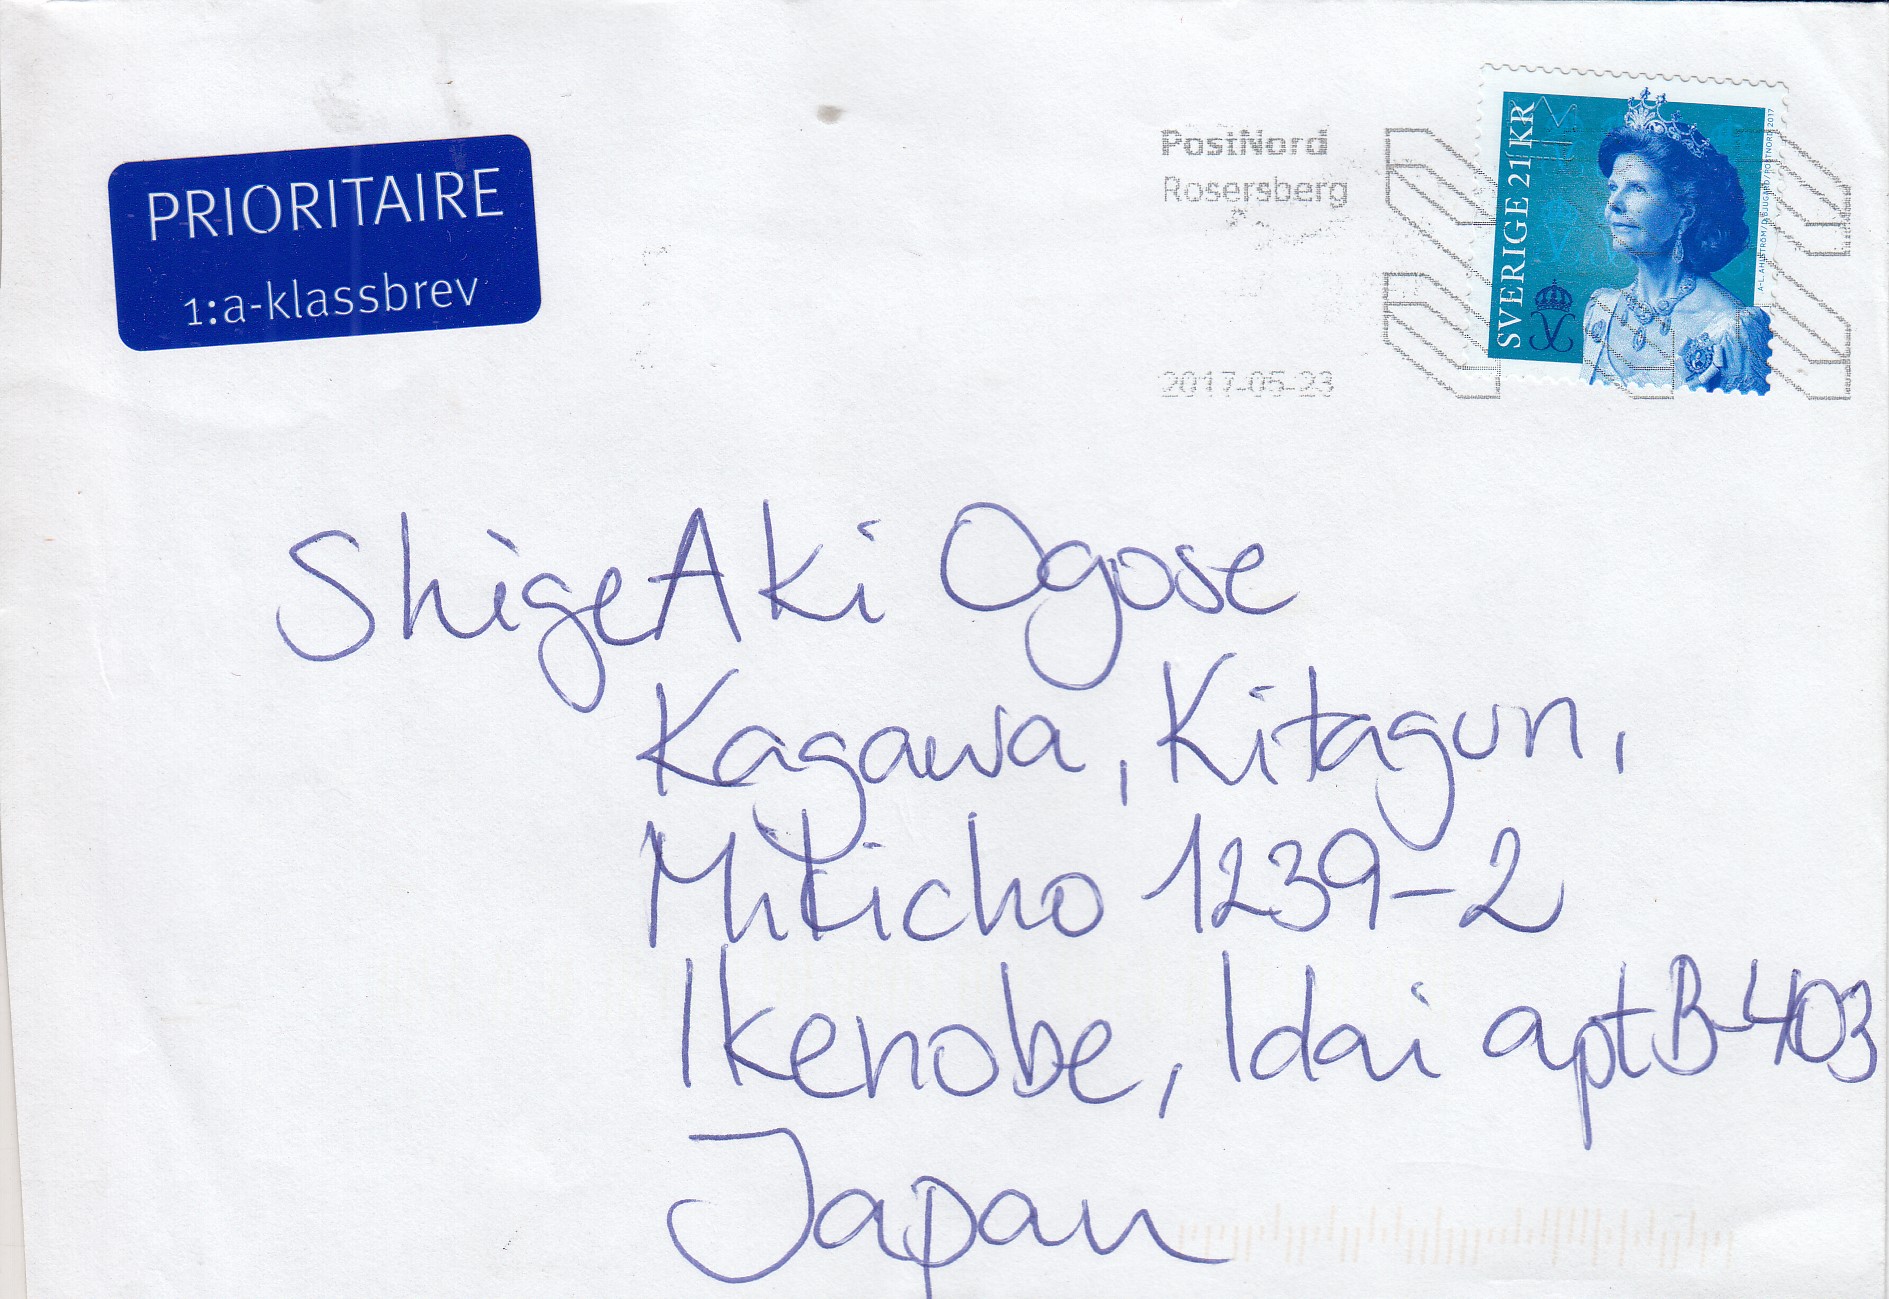 PRIORITAIRE
1:a-klassbrev
PostNord
Rosersberg
2017-05-23
SVERIGE 21 KR
A-L. AHLSTRÖM/D BJUGÅRD/POSTNORD 2017
ShigeAki Ogose
Kagawa, Kitagun,
Mikicho 1239-2
Ikenobe, Idai apt B-403
Japan